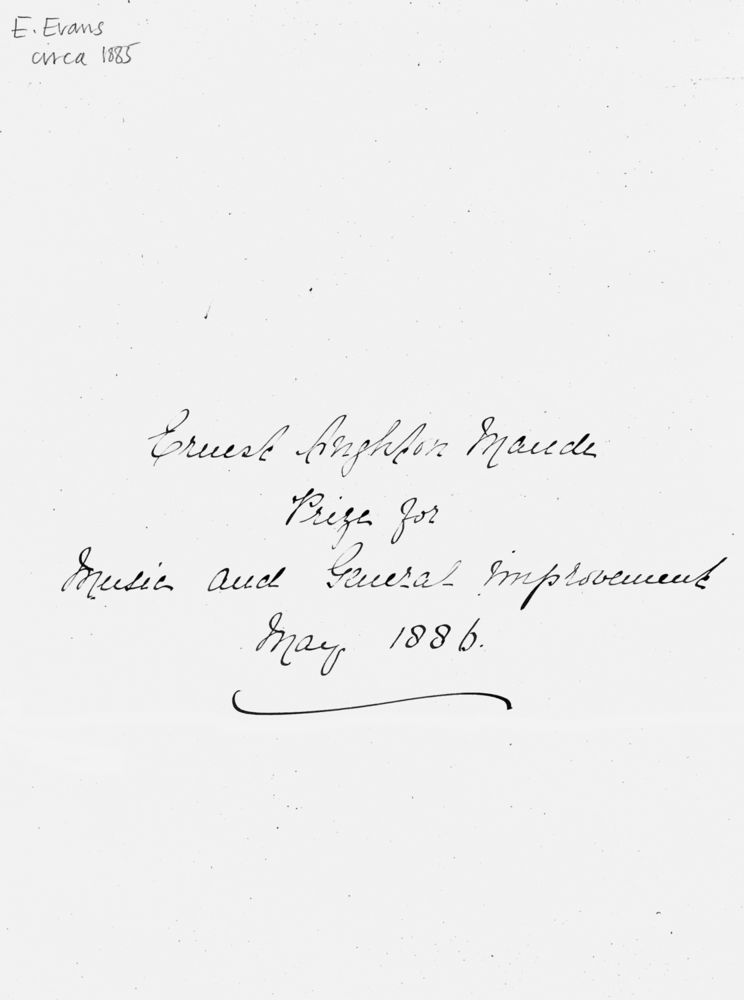 E. Evans
circa 1885
Ernest Maude
Prize for
Music and General Improvement
May 1886.